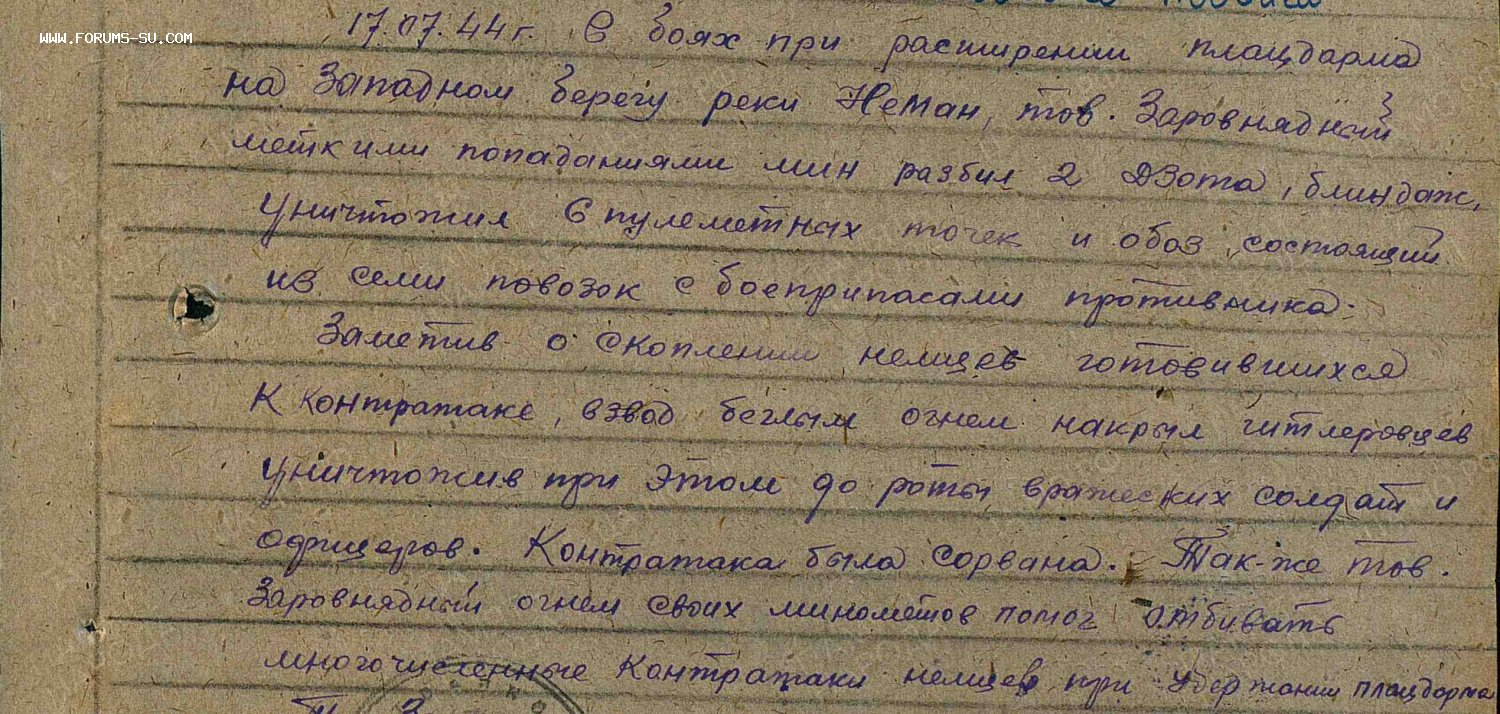 WWW.FORUMS-SU.COM
17.07.44 г. в боях при расширении плацдарма
на Западном берегу реки Неман, тов. Заровнядный
меткими попаданиями мин разбил 2 ДЗота, блиндаж,
уничтожил 6 пулеметных точек и обоз, состоящий
из семи повозок с боеприпасами противника.
Заметив о скоплении немцев готовившихся
к контратаке, взвод беглым огнем накрыл гитлеровцев
уничтожив при этом до роты вражеских солдат и
офицеров. Контратака была сорвана. Так-же тов.
Заровнядный огнем своих минометов помог отбивать
многочисленные контратаки немцев при удержании плацдарма